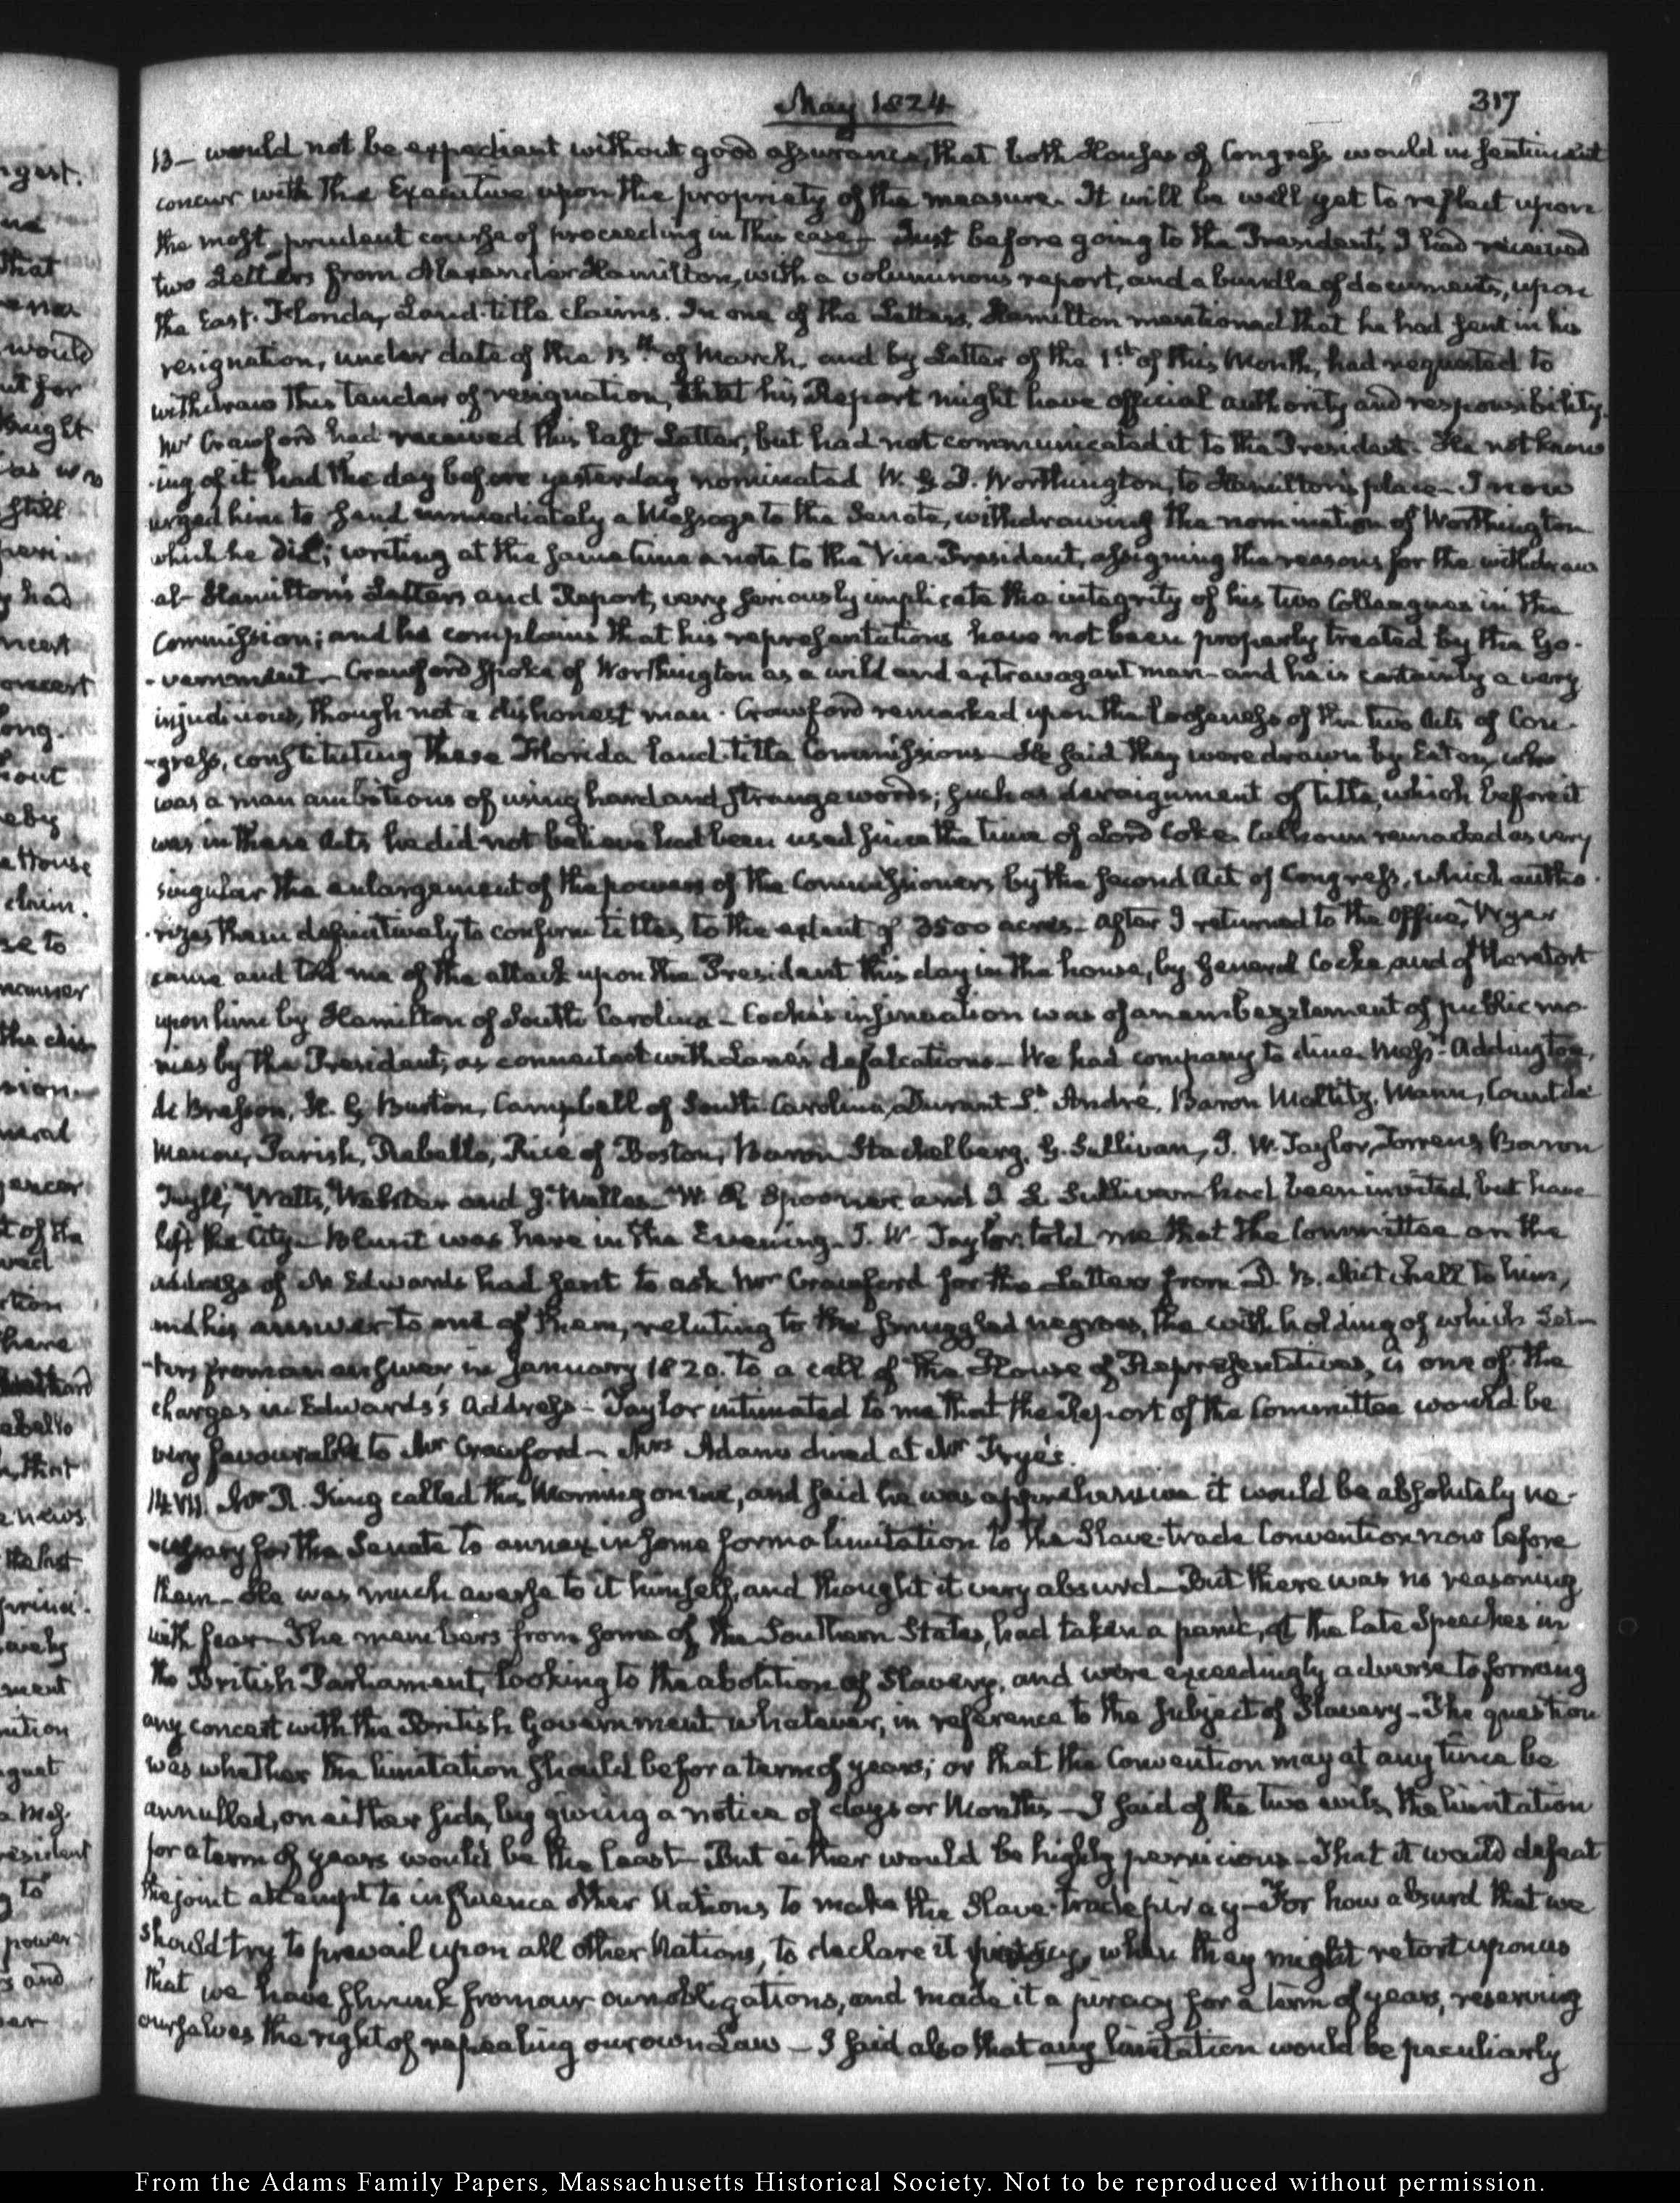 May 1824
317
13– would not be expedient without good assurance, that both Houses of Congress would in sentiment
concur with the Executive upon the propriety of the measure. It will be well yet to reflect upon
the most prudent course of proceeding in this case– Just before going to the President's I had received
two Letters from Alexander Hamilton, with a voluminous report, and a bundle of documents, upon
the East-Florida, Land-title claims. In one of the Letters, Hamilton mentioned that he had sent in his
resignation, under date of the 13th of March, and by Letter of the 1st of this Month, had requested to
withdraw this tender of resignation, that his Report might have official authority and responsibility.
Mr Crawford had received this last Letter, but had not communicated it to the President. He not know
-ing of it had the day before yesterday nominated W. G. D. Worthington, to Hamilton's place– I now
urged him to send immediately a Message to the Senate, withdrawing the nomination of Worthington
which he did; writing at the same time a note to the Vice-President, assigning the reasons for the withdraw
-al– Hamilton's Letters and Report, very seriously implicate the integrity of his two Colleagues in the
Commission; and he complains that his representations have not been properly treated by the Go-
-vernment– Crawford spoke of Worthington as a wild and extravagant man– and he is certainly a very
injudicious, though not a dishonest man. Crawford remarked upon the looseness of the two Acts of Con-
-gress, constituting these Florida land-title Commissions– He said they were drawn by Eaton, who
was a man ambitious of using hard and strange words; such as deraignment of title, which before it
was in these Acts he did not believe had been used since the time of Lord Coke. Calhoun remarked as very
singular the enlargement of the powers of the Commissioners by the second Act of Congress, which autho-
-rizes them definitively to confirm titles to the extent of 3500 acres– After I returned to the Office, Wyer
came and told me of the attack upon the President this day in the house, by General Cocke, and of the retort
upon him by Hamilton of South Carolina– Cocke's insinuation was of an embezzlement of public mo-
nies by the President, as connected with Lane's defalcations– We had company to dine. Messrs Addington,
de Bresson, H. G. Burton, Campbell of South-Carolina, Durant St André, Baron Maltitz, Mann, Count de
Menou, Parish, Rebello, Rice of Boston, Baron Stackelberg, G. Sullivan, J. W. Taylor, Torrens, Baron
Tuyll, Watts, Webster and J. – W. R. Spooner and J. L. Sullivan had been invited, but have
left the City– Blunt was here in the Evening– J. W. Taylor told me that the Committee on the
address of N. Edwards had sent to ask Mr Crawford for the Letters from D. B. Mitchell to him,
and his answer to one of them, relating to the smuggled negroes, the withholding of which Let-
-ters from an answer in January 1820. to a call of the House of Representatives, is one of the
charges in Edwards's Address– Taylor intimated to me that the Report of the Committee would be
very favourable to Mr Crawford– Mrs Adams dined at Mr Frye's.
14. VII. Mr R. King called this Morning on me, and said he was apprehensive it would be absolutely ne-
-cessary for the Senate to annex in some form a limitation to the Slave-trade Convention now before
them– He was much averse to it himself, and thought it very absurd– But there was no reasoning
with fear– The members from some of the Southern States, had taken a panic, at the late Speeches in
the British Parliament, looking to the abolition of Slavery, and were exceedingly adverse to forming
any concert with the British Government whatever, in reference to the subject of Slavery– The question
was whether the limitation should be for a term of years; or that the Convention may at any time be
annulled, on either side, by giving a notice of days or Months– I said of the two evils, the limitation
for a term of years would be the least– But either would be highly pernicious– That it would defeat
the joint attempt to influence other Nations to make the Slave-trade piracy– For how absurd that we
should try to prevail upon all other Nations, to declare it piracy, when they might retort upon us
that we have shrunk from our own obligations, and made it a piracy for a term of years, reserving
ourselves the right of repealing our own Law– I said also that any limitation would be peculiarly
From the Adams Family Papers, Massachusetts Historical Society. Not to be reproduced without permission.